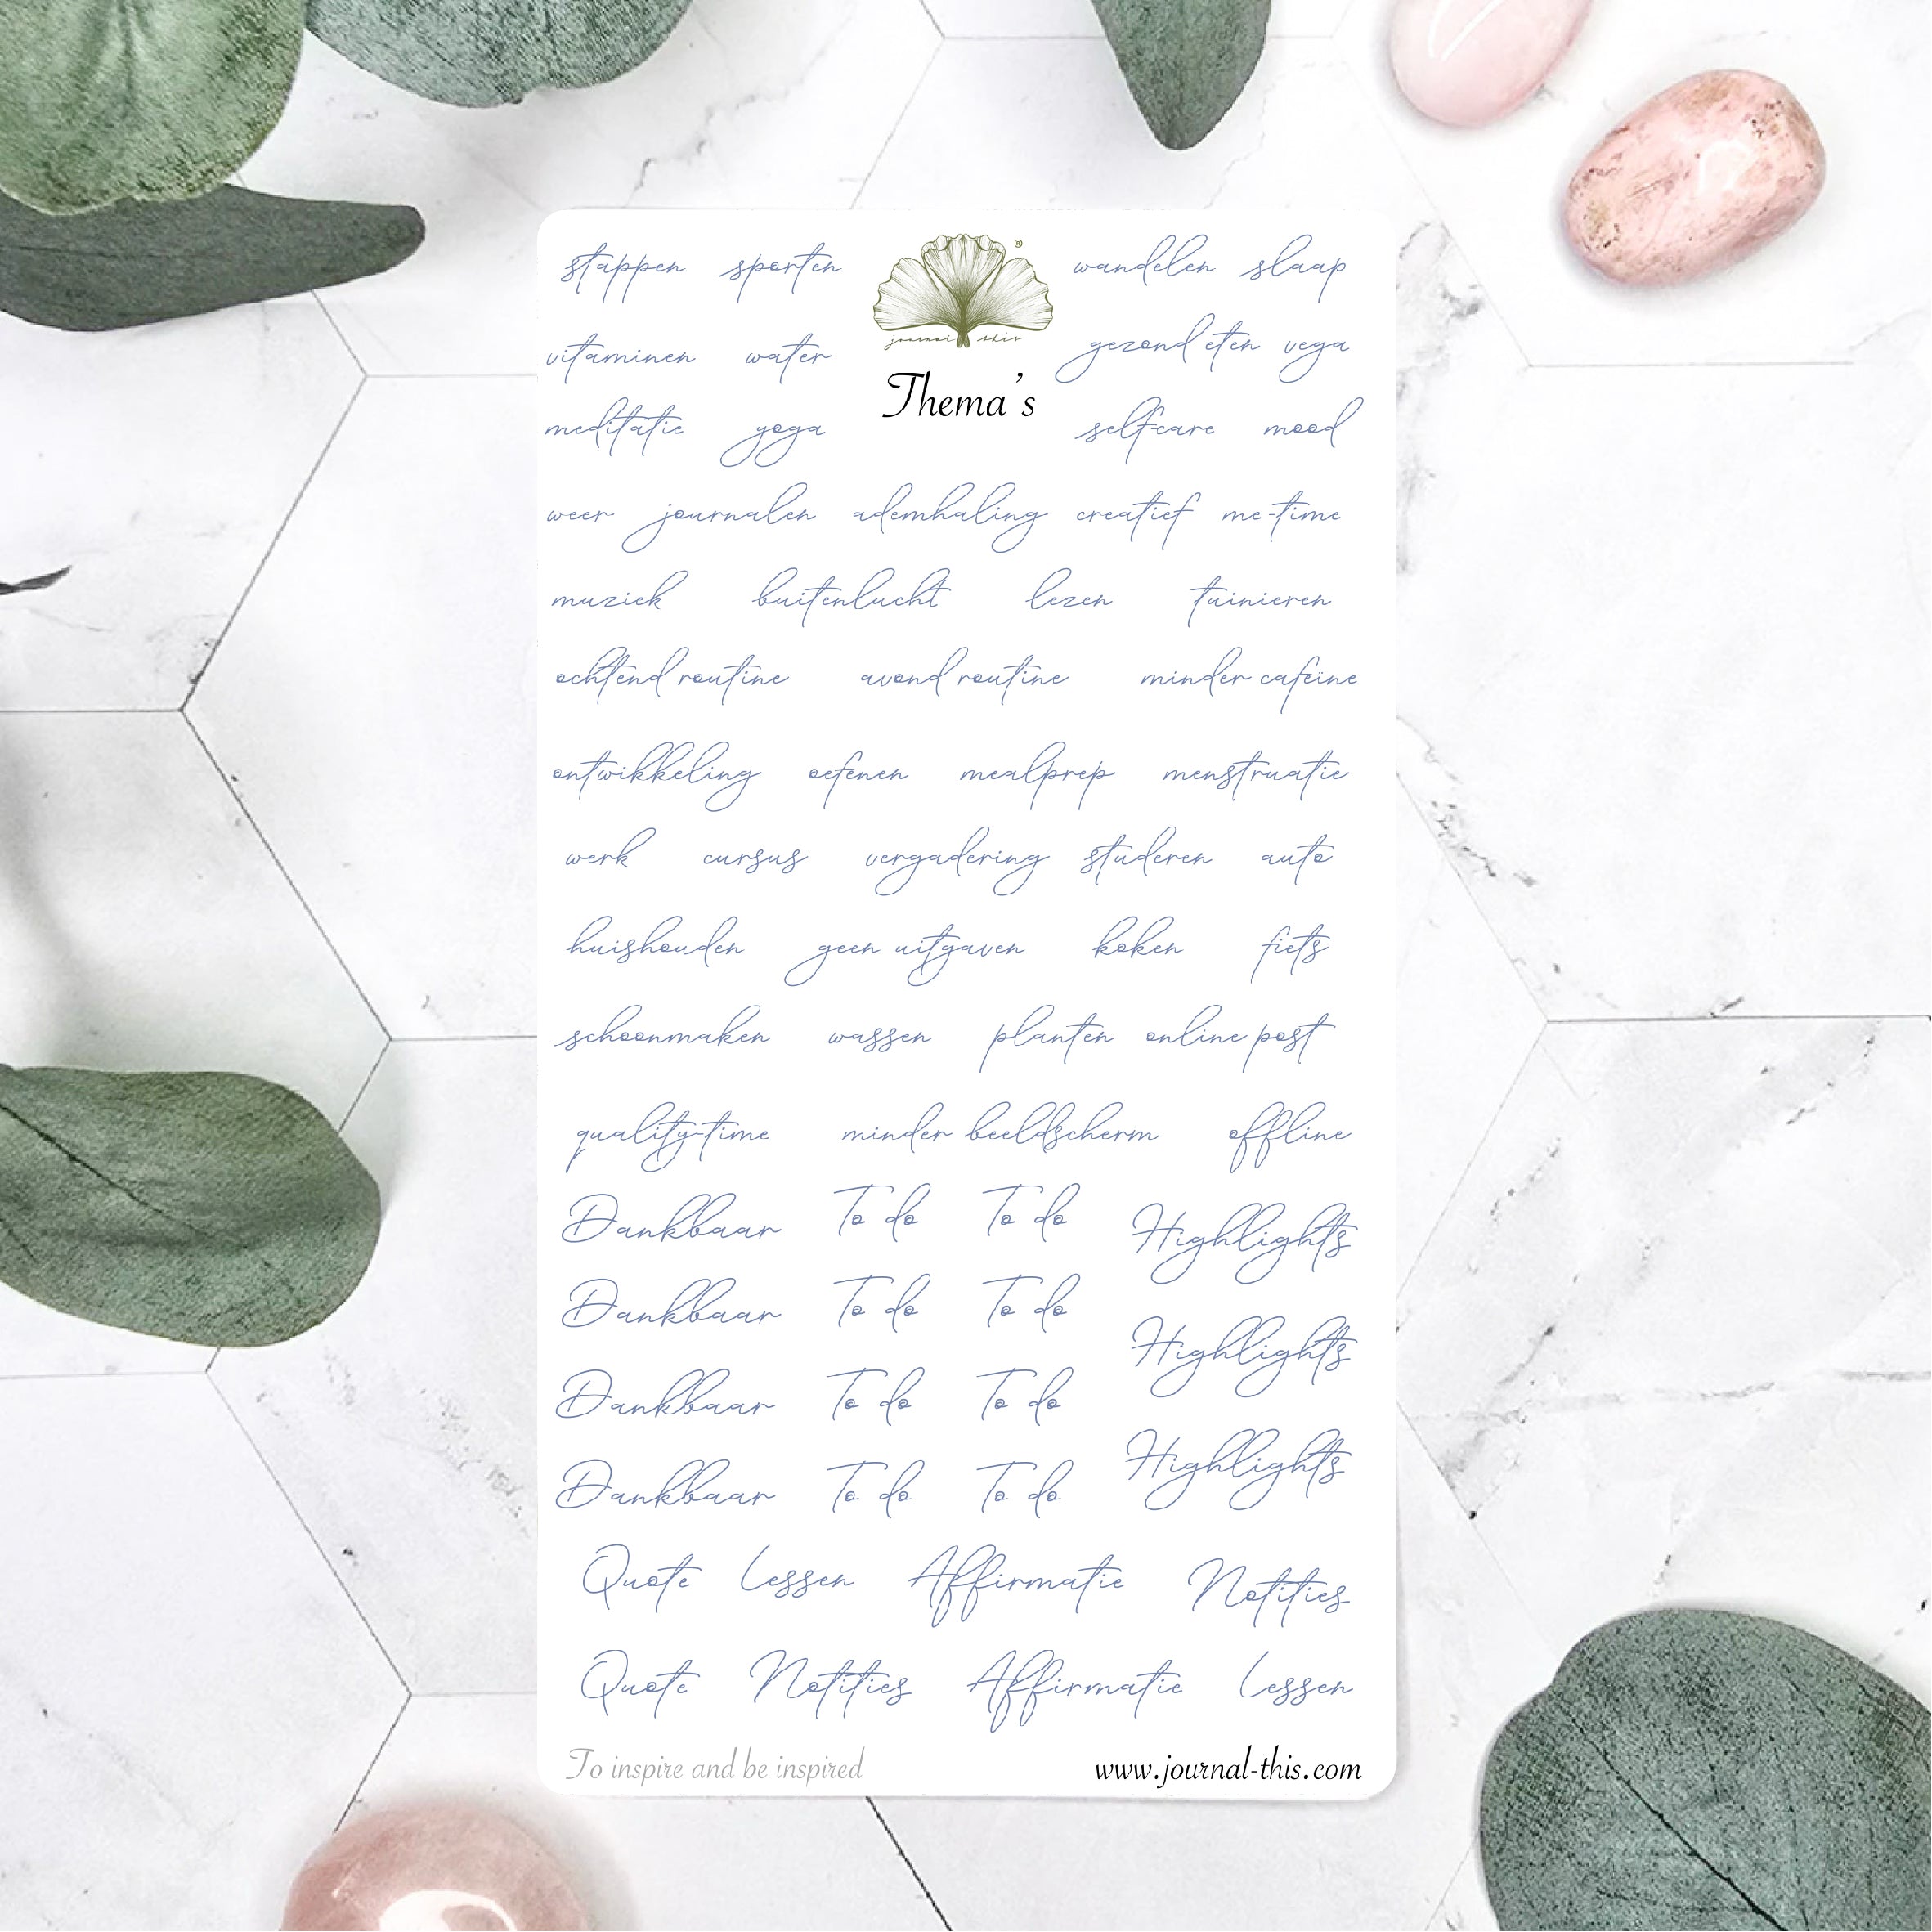 stappen sporten wandelen slaap
journal this
vitaminen water gezond eten vega
Thema's
meditatie yoga selfcare mood
weer journalen ademhaling creatief me-time
muziek buitenlucht lezen tuinieren
ochtend routine avond routine minder cafeïne
ontwikkeling oefenen mealprep menstruatie
werk cursus vergadering studeren auto
huishouden geen uitgaven koken fiets
schoonmaken wassen planten online post
quality-time minder beeldscherm offline
Dankbaar To do To do Highlights
Dankbaar To do To do
Highlights
Dankbaar To do To do
Highlights
Dankbaar To do To do
Quote Lessen Affirmatie Notities
Quote Notities Affirmatie Lessen
To inspire and be inspired www.journal-this.com